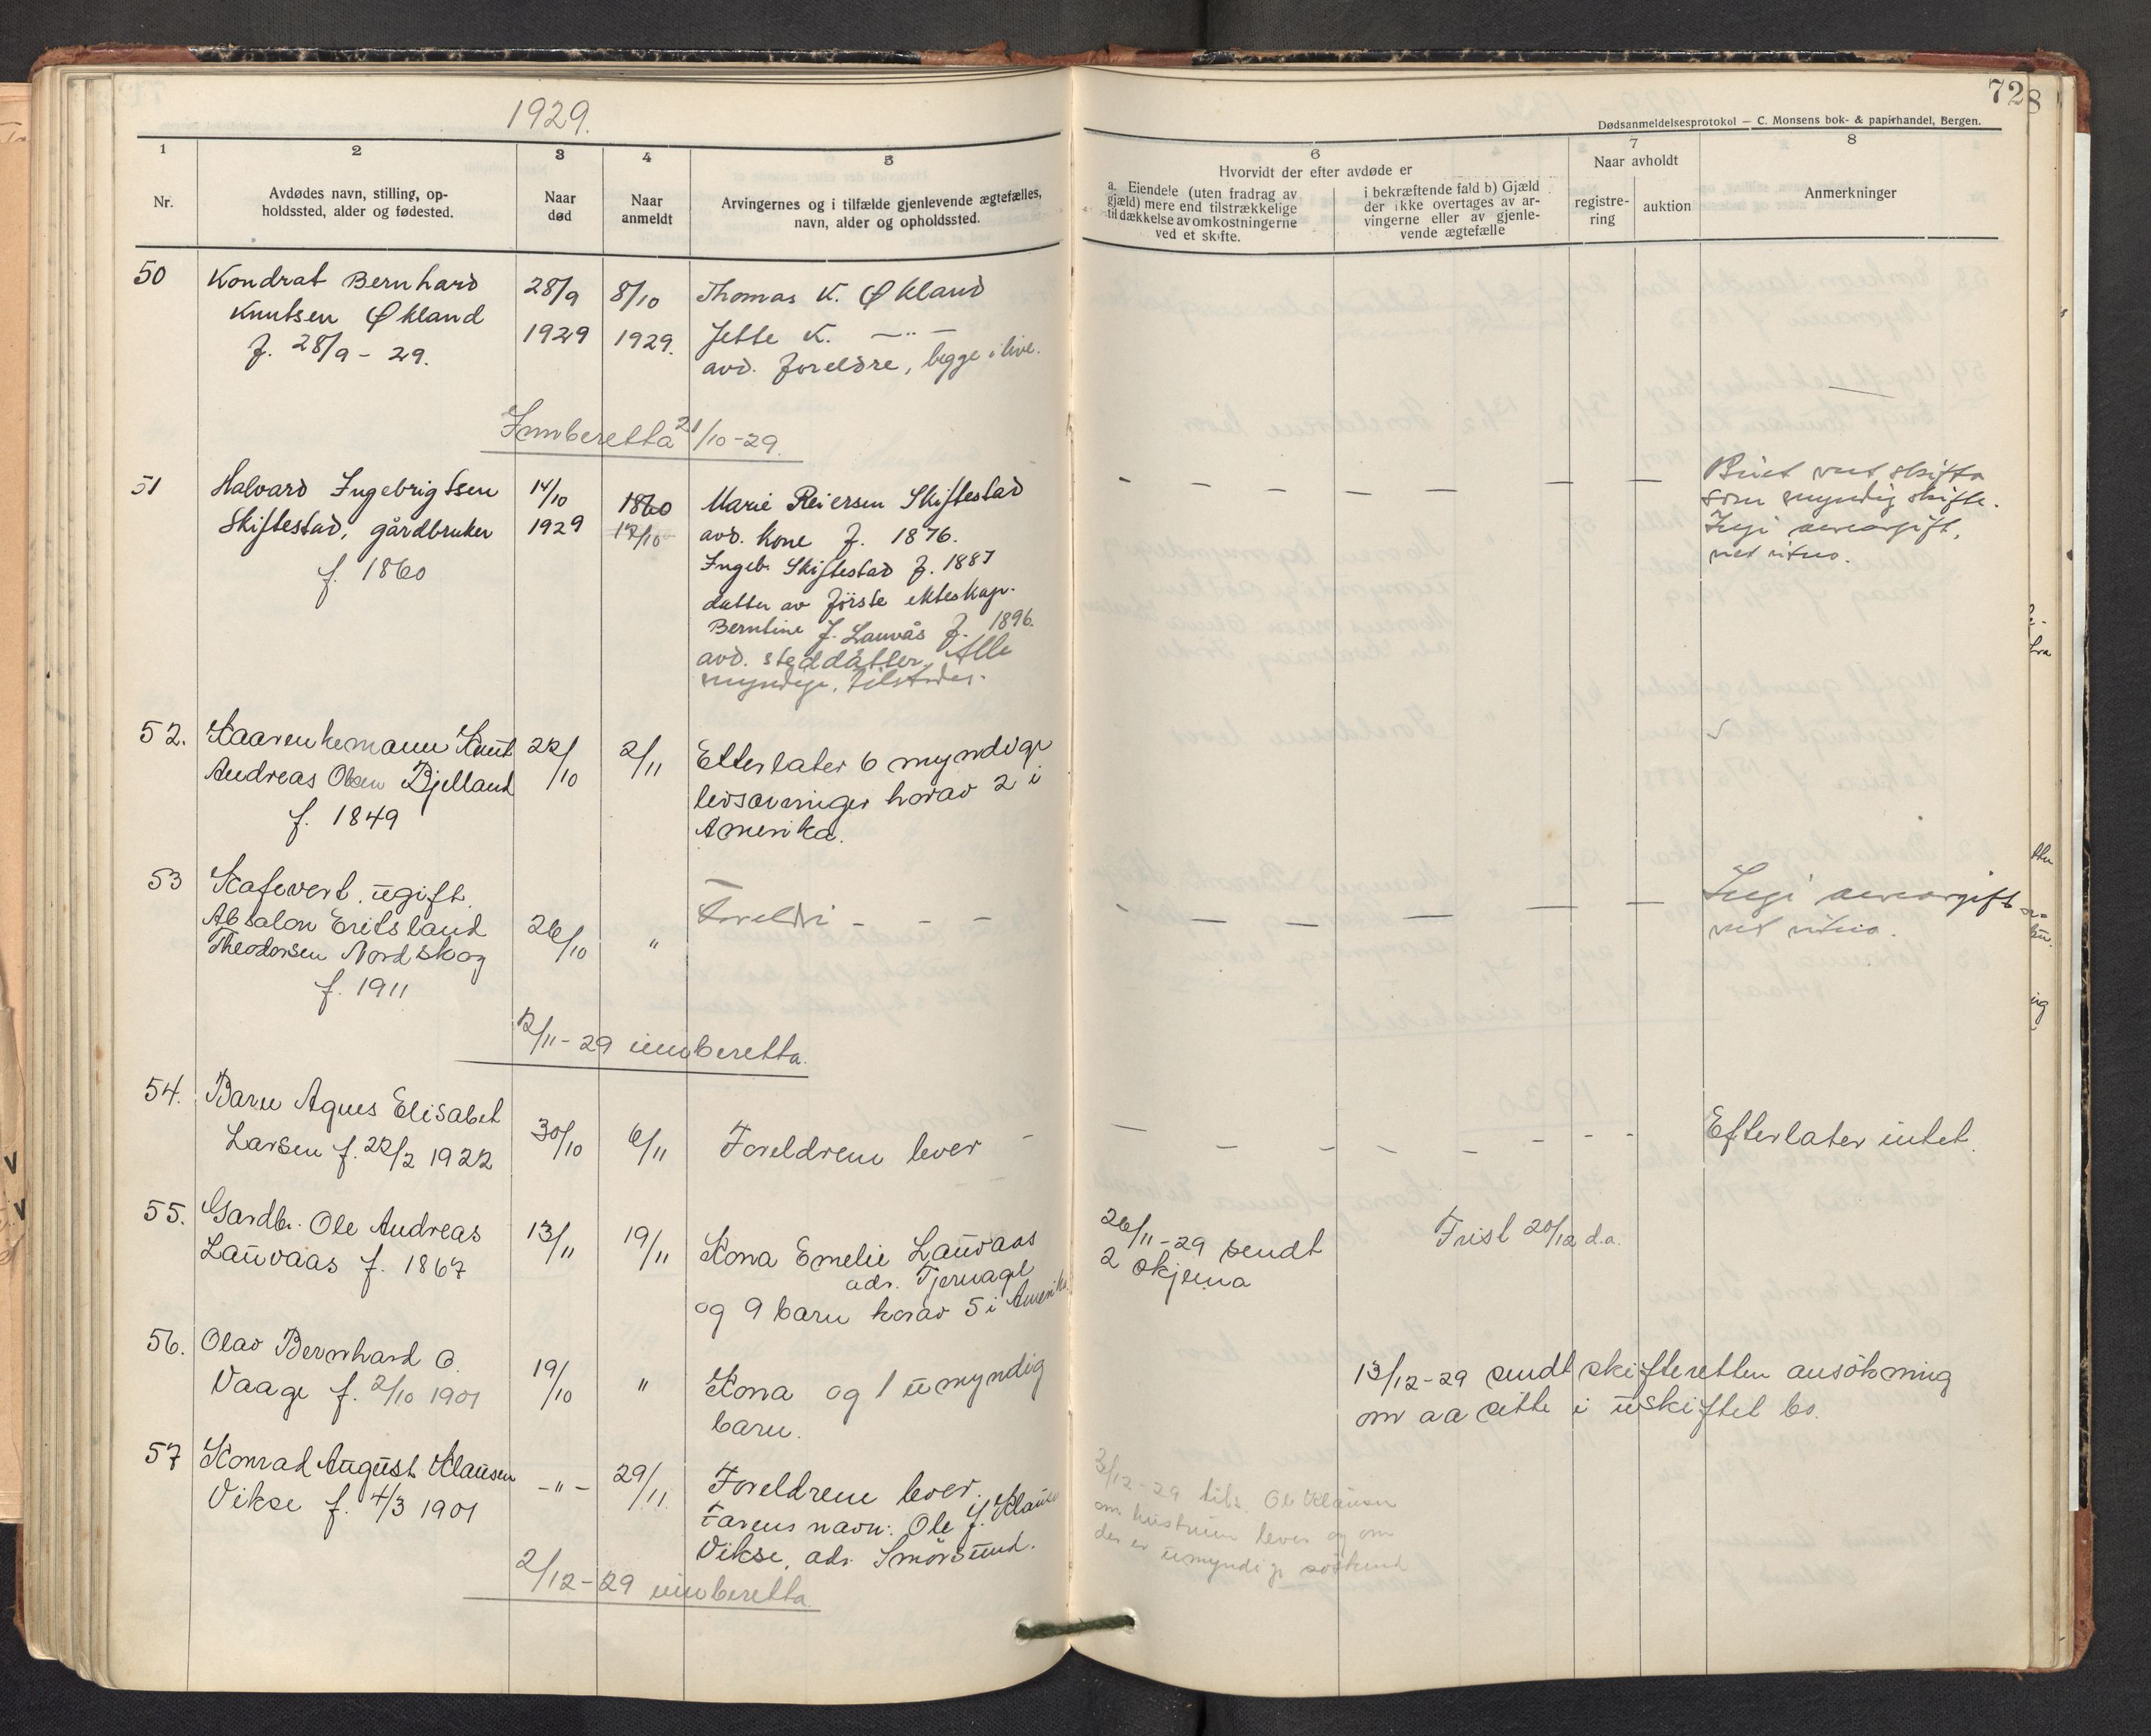 1929.
72
8
Dødsanmeldelsesprotokol — C. Monsens bok- & papirhandel, Bergen.
1
2
3
4
5
6
7
8
Nr.
Avdødes navn, stilling, op-
holdssted, alder og fødested.
Naar
død
Naar
anmeldt
Arvingernes og i tilfælde gjenlevende ægtefælles,
navn, alder og opholdssted.
Hvorvidt der efter avdøde er
a. Eiendele (uten fradrag av
gjæld) mere end tilstrækkelige
til dækkelse av omkostningerne
ved et skifte.
i bekræftende fald b) Gjæld
der ikke overtages av ar-
vingerne eller av gjenle-
vende ægtefælle
Naar avholdt
registre-
ring
auktion
Anmerkninger
50
Kondrat Bernhard
Knutsen Økland
f. 28/9 - 29.
28/9
1929
8/10
1929.
Thomas K. Økland
Jette K. —"—
avd. foreldre, begge i live.
Innberetta 21/10-29.
51
Halvard Ingebrigtsen
Skiftestad, gårdbruker
f. 1860
14/10
1929
1860
17/10
Marie Reiersen Skiftestad
avd. kone f. 1876.
Ingeb. Skiftestad f. 1887
datter av første ekteskap.
Berntine J. Lauvås f. 1896.
avd. steddatter. Alle
myndige, tilstades.
- — — — — — —
Buet vert skifta
som myndig skifte.
Ingi arveavgift,
52.
Kaarenkemann Knut
Andreas Olsen Bjelland
f. 1849
22/10
2/11
Etterlater 6 myndige
livsarvinger horav 2 i
Amerika.
53
Ugift
Absalon Eritsland
Theodorsen Nordskog
f. 1911
26/10
"
Foreldri - - -
- — — — — —
Ingi arveavgift
12/11-29 innberetta.
54.
Barn Agnes Elisabet
Larsen f. 22/2 1922
30/10
6/11
Foreldrene lever -
— - - - - - - -
Efterlater intet.
55.
Gardbr. Ole Andreas
Lauvaas f. 1867
13/11
19/11
Kona Emelie Lauvaas
adr. Tjernagel
og 9 barn horav 5 i Amerika
26/11-29 sendt
2 skjema
Frist 20/12 d.a.
56.
Olav Bernhard O.
Vaage f. 2/10 1901
19/10
"
Kona og 1 umyndig
barn.
13/12-29 sendt skifteretten ansökning
om aa sitte i uskiftet bo.
57
Konrad August Klausen
Vikse f. 4/3 1901
- " -
29/11.
Foreldrene lever.
Farens navn: Ole J. Klausen
Vikse, adr. Smörsund.
3/12-29 tils. Ole Klausen
om hustruen lever og om
der er umyndige söskend
2/12-29 innberetta.